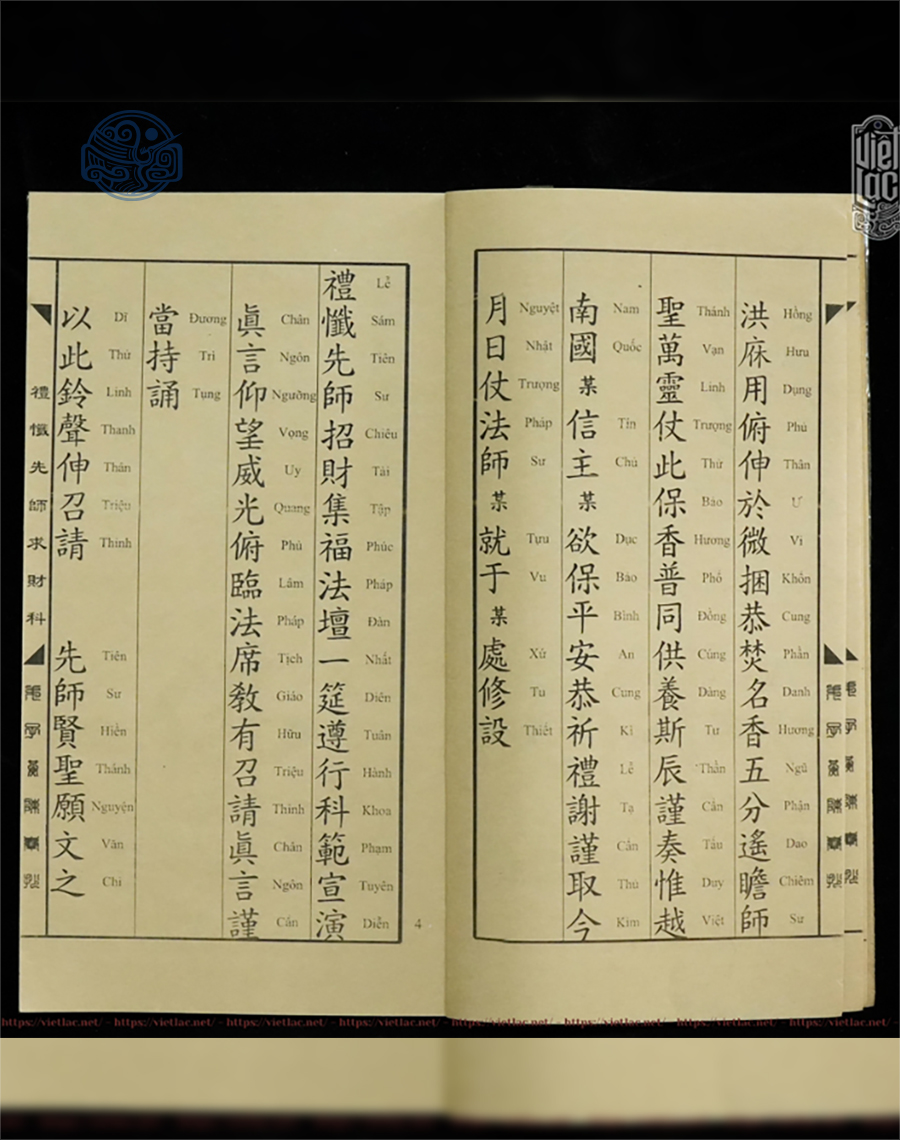 洪庥用俯伸於微捆恭焚名香五分遙瞻師
Hồng Hưu Dụng Phủ Thân Ư Vi Khổn Cung Phần Danh Hương Ngũ Phận Dao Chiêm Sư
聖萬靈仗此保香普同供養斯辰謹奏惟越
Thánh Vạn Linh Trượng Thử Bảo Hương Phổ Đồng Cúng Dàng Tư Thần Cẩn Tấu Duy Việt
南國某信主某欲保平安恭祈禮謝謹取今
Nam Quốc Tín Chủ Dục Bảo Bình An Cung Kì Lễ Tạ Cẩn Thủ Kim
月日仗法師某就于某處修設
Nguyệt Nhật Trượng Pháp Sư Tựu Vu Xử Tu Thiết
禮懺先師招財集福法壇一筵遵行科範宣演
Lễ Sám Tiên Sư Chiêu Tài Tập Phúc Pháp Đàn Nhất Diên Tuân Hành Khoa Phạm Tuyên Diễn
4
眞言仰望威光俯臨法席教有召請眞言謹
Chân Ngôn Ngưỡng Vọng Uy Quang Phủ Lâm Pháp Tịch Giáo Hữu Triệu Thỉnh Chân Ngôn Cẩn
當持誦
Đương Trì Tụng
以此鈴聲伸召請 先師賢聖願文之
Dĩ Thử Linh Thanh Thân Triệu Thỉnh Tiên Sư Hiền Thánh Nguyện Văn Chi
禮懺先師求財科
Việt Lạc
https://vietlac.net/ - https://vietlac.net/ - https://vietlac.net/ - https://vietlac.net/ - https://vietlac.net/ - https://vietlac.net/ - https://vietlac.net/ - https://vietlac.net/ -